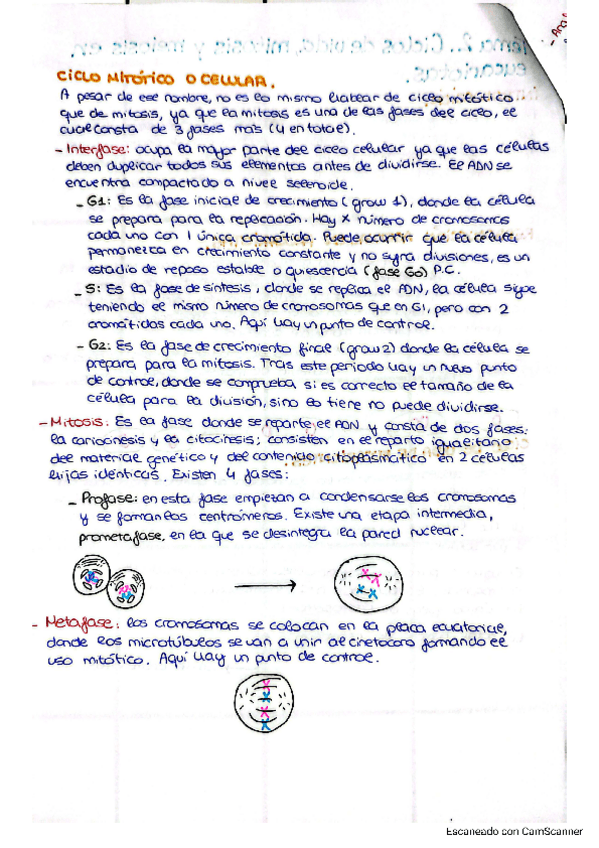 CICLO MITÓTICO O CELULAR.
A pesar de ese nombre, no es lo mismo hablar de ciclo mitótico
que de mitosis, ya que la mitosis es una de las fases del ciclo, el
cual consta de 3 fases más (4 en total).
- Interfase: ocupa la mayor parte del ciclo celular ya que las células
deben duplicar todos sus elementos antes de dividirse. El ADN se
encuentra compactado a nivel solenoide.
- G1: Es la fase inicial de crecimiento (grow 1), donde la célula
se prepara para la replicación. Hay x número de cromosomas
cada uno con 1 única cromátida. Puede ocurrir que la célula
permanezca en crecimiento constante y no sufra divisiones, es un
estadio de reposo estable o quiescencia (fase G0) P.C.
- S: Es la fase de síntesis, donde se replica el ADN, la célula sigue
teniendo el mismo número de cromosomas que en G1, pero con 2
cromátidas cada uno. Aquí hay un punto de control.
- G2: Es la fase de crecimiento final (grow 2) donde la célula se
prepara para la mitosis. Tras este periodo hay un nuevo punto
de control, donde se comprueba si es correcto el tamaño de la
célula para la división, si no lo tiene no puede dividirse.
- Mitosis: Es la fase donde se reparte el ADN y consta de dos fases:
la cariocinesis y la citocinesis; consisten en el reparto igualitario
del material genético y del contenido citoplasmático en 2 células
hijas idénticas. Existen 4 fases:
- Profase: en esta fase empiezan a condensarse los cromosomas
y se forman los centrómeros. Existe una etapa intermedia,
prometafase, en la que se desintegra la pared nuclear.
- Metafase: los cromosomas se colocan en la placa ecuatorial,
donde los microtúbulos se van a unir al cinetocoro formando el
uso mitótico. Aquí hay un punto de control.
Escaneado con CamScanner